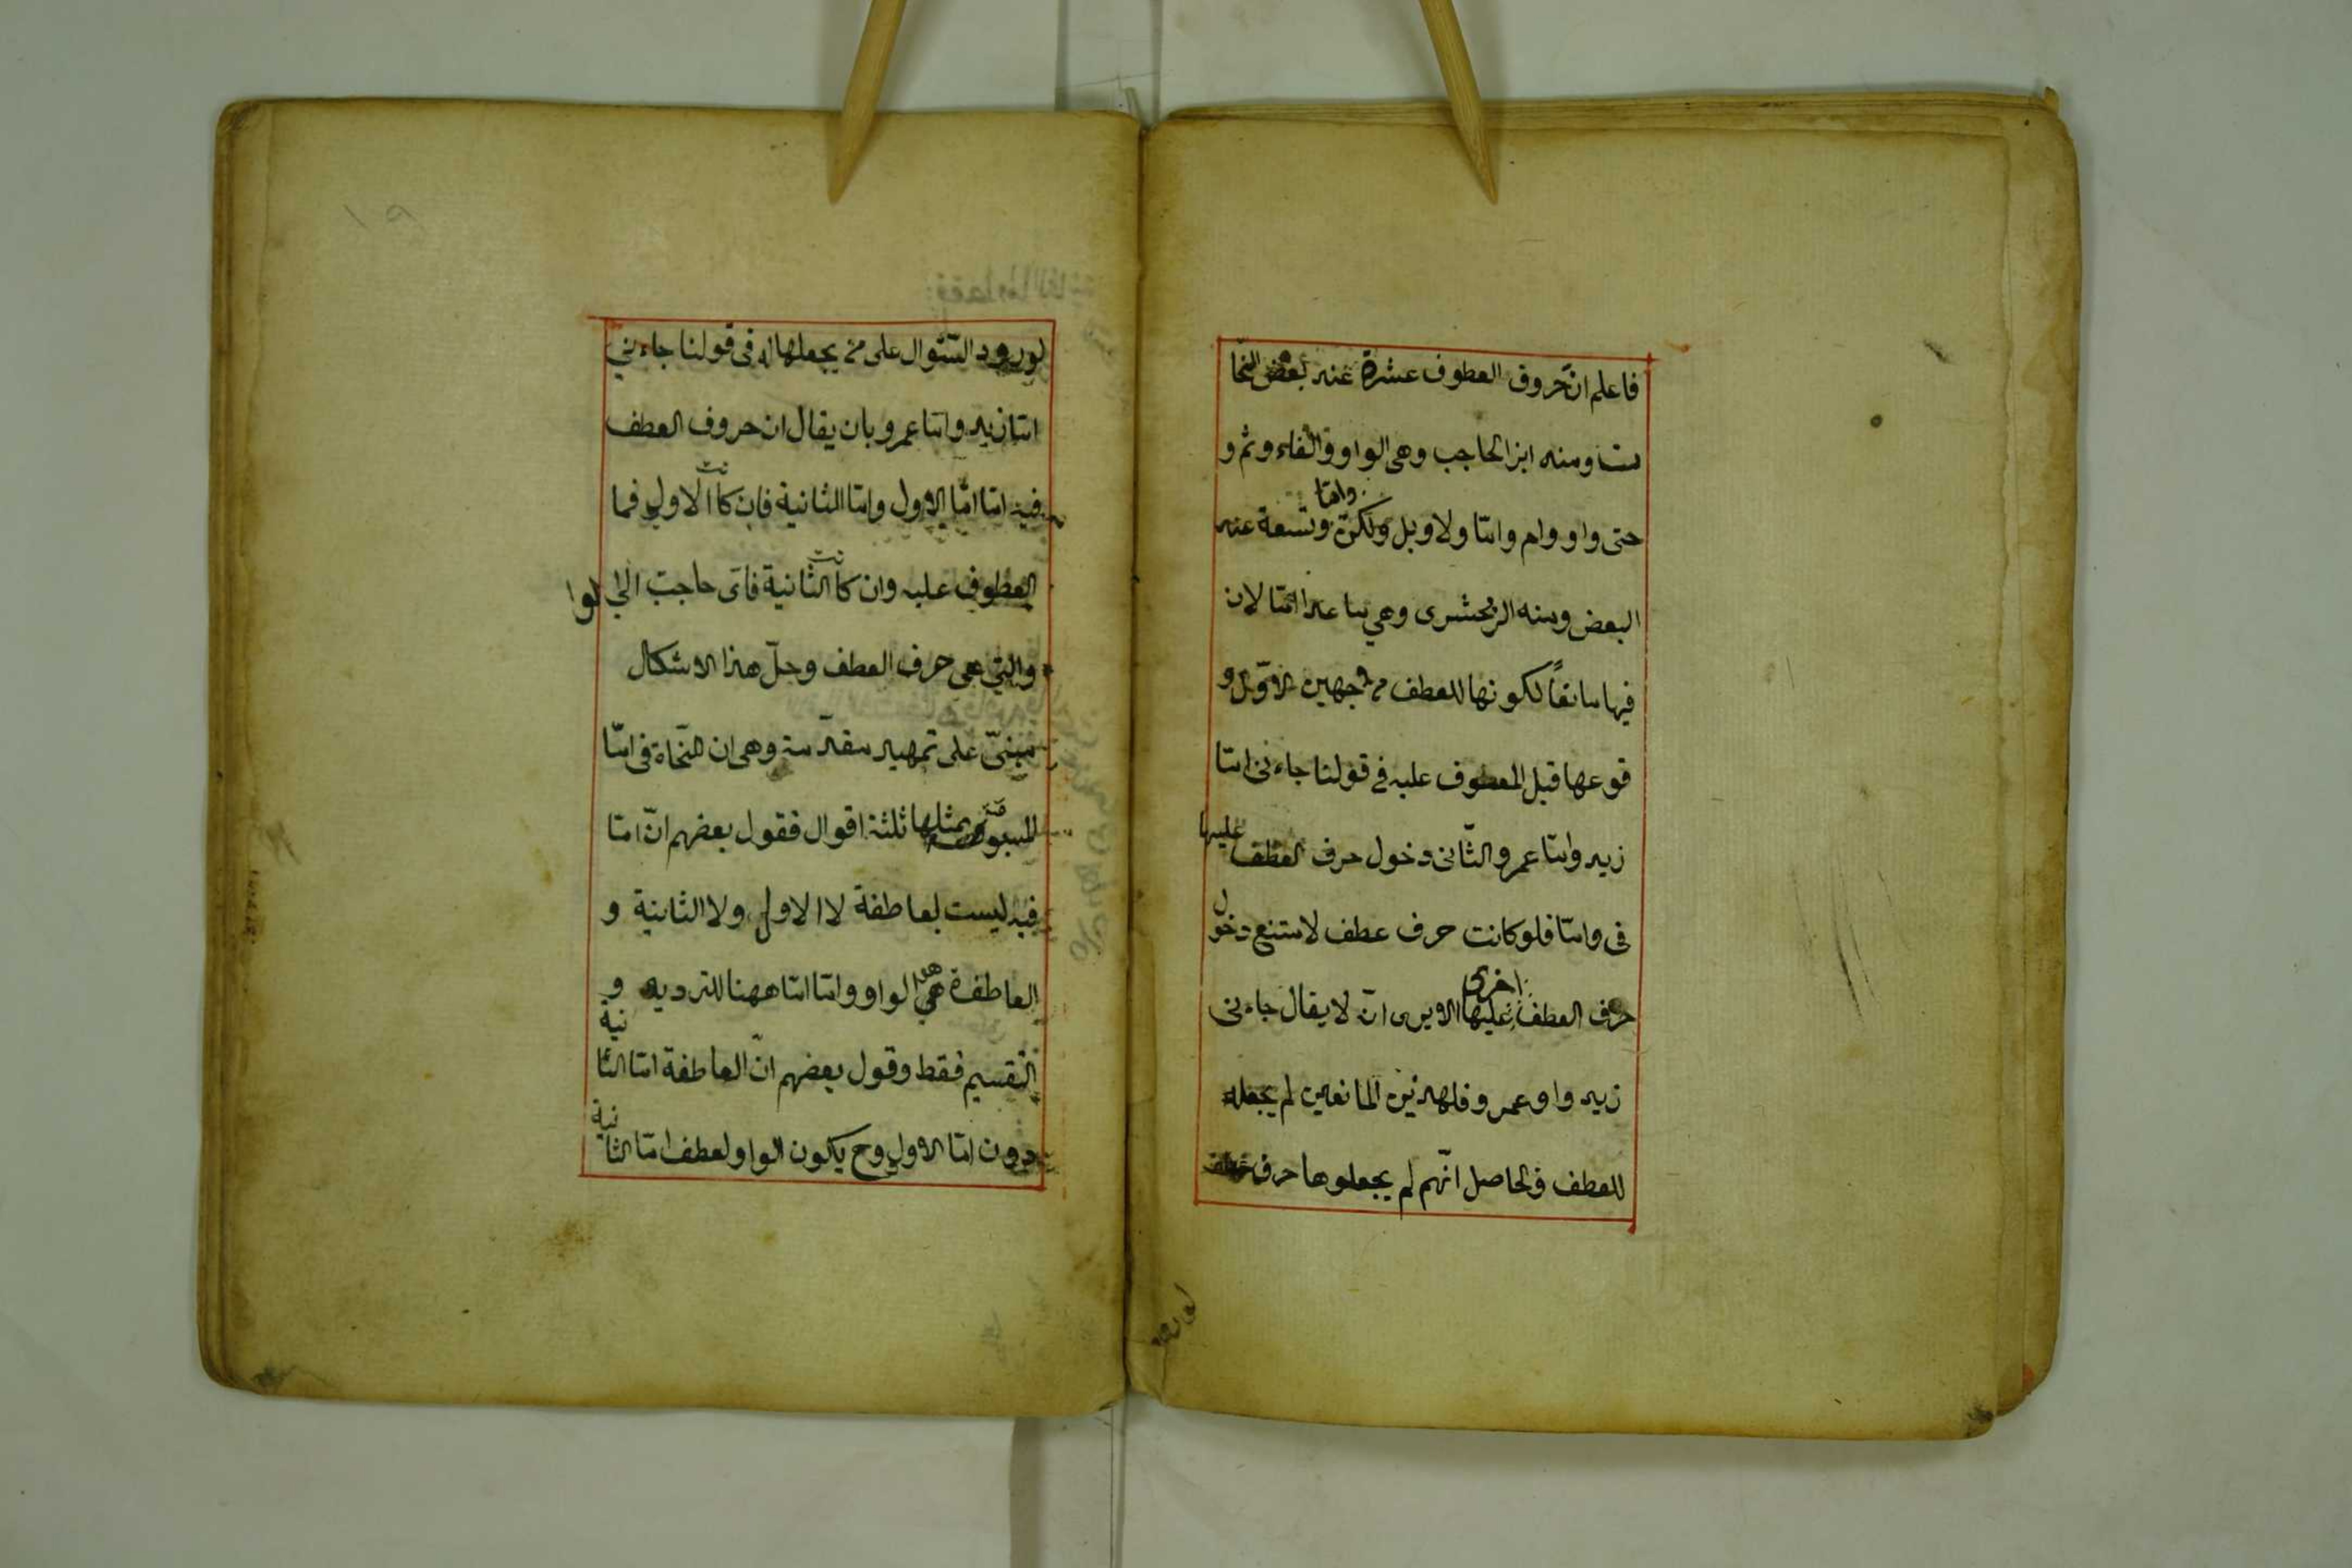 فاعلم ان حروف العطوف عشرة عند بعض النحا
ت ومنه ابن الحاجب وهى الواو والفاء وثم و
واما
حتى واو وام واما ولا وبل ولكن وتسعة عند
البعض ومنه الزمخشرى وهي ما عدا امّا لان
فيها مانعاً لكونها للعطف من وجهين الاوّل و
قوعها قبل المعطوف عليه في قولنا جاءنى امّا
زيد وامّا عمرو الثّانى دخول حرف العطف عليها
فى وامّا فلو كانت حرف عطف لامتنع دخول
اخرى
حرف العطف عليها الا يرى انّه لا يقال جاءنى
زيد واو عمرو فلهذين المانعين لم يجعله
للعطف والحاصل انّهم لم يجعلوها حرف عطف
لورود السّئوال على من يجعلها له فى قولنا جاءنى
امّا زيد وامّا عمرو بان يقال ان حروف العطف
فيه امّا امّا الاول وامّا الثانية فان كانت الاولى فما
المعطوف عليه وان كانت الثانية فاىّ حاجت الى الوا
والتي هى حرف العطف وحلّ هذا الاشكال
مبنىّ على تمهيد مقدّمة وهى ان النّحاة فى امّا
المسبوقة بمثلها ثلثة اقوال فقول بعضهم انّ امّا
فيه ليست بعاطفة لا الاولى ولا الثانية و
العاطفة هى الواو وامّا امّا ههنا للترديد و
التّقسيم فقط وقول بعضهم انّ العاطفة امّا الثانية
دون امّا الاولى وح يكون الواو لعطف امّا الثانية